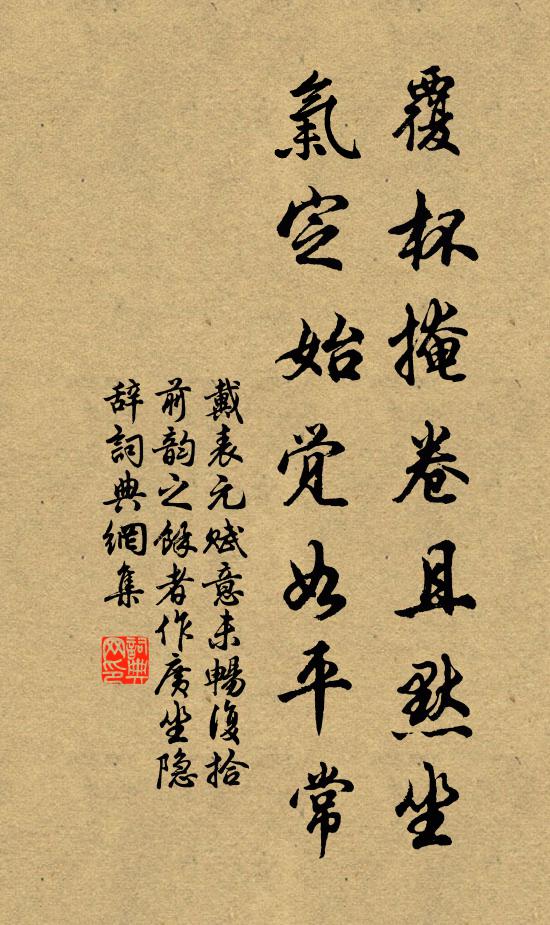 覆杯掩卷且默坐
氣定始覺如平常
戴表元賦意未暢復拾
前韵之餘者作廣坐隐
辞詞典網集
詞典网印